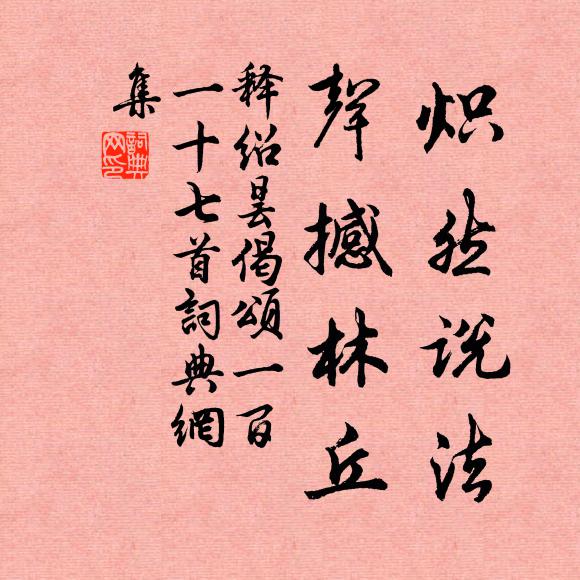 炽然说法
聲撼林丘
释绍昙偈頌一百
一十七首詞典網
集
詞典网印